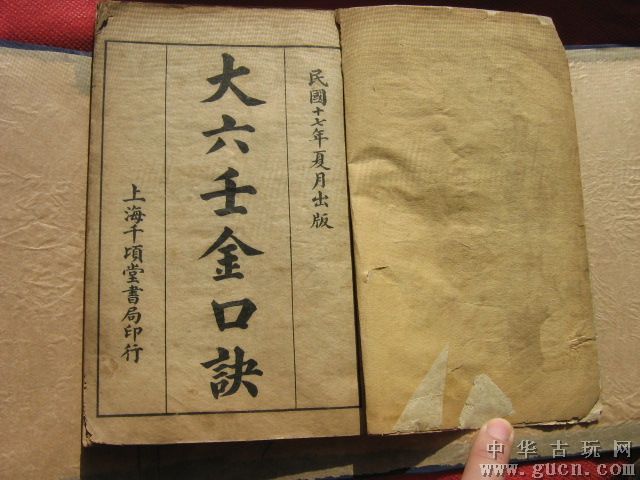 民國十七年夏月出版
大六壬金口訣
上海千頃堂書局印行
中华古玩网
www.gucn.com